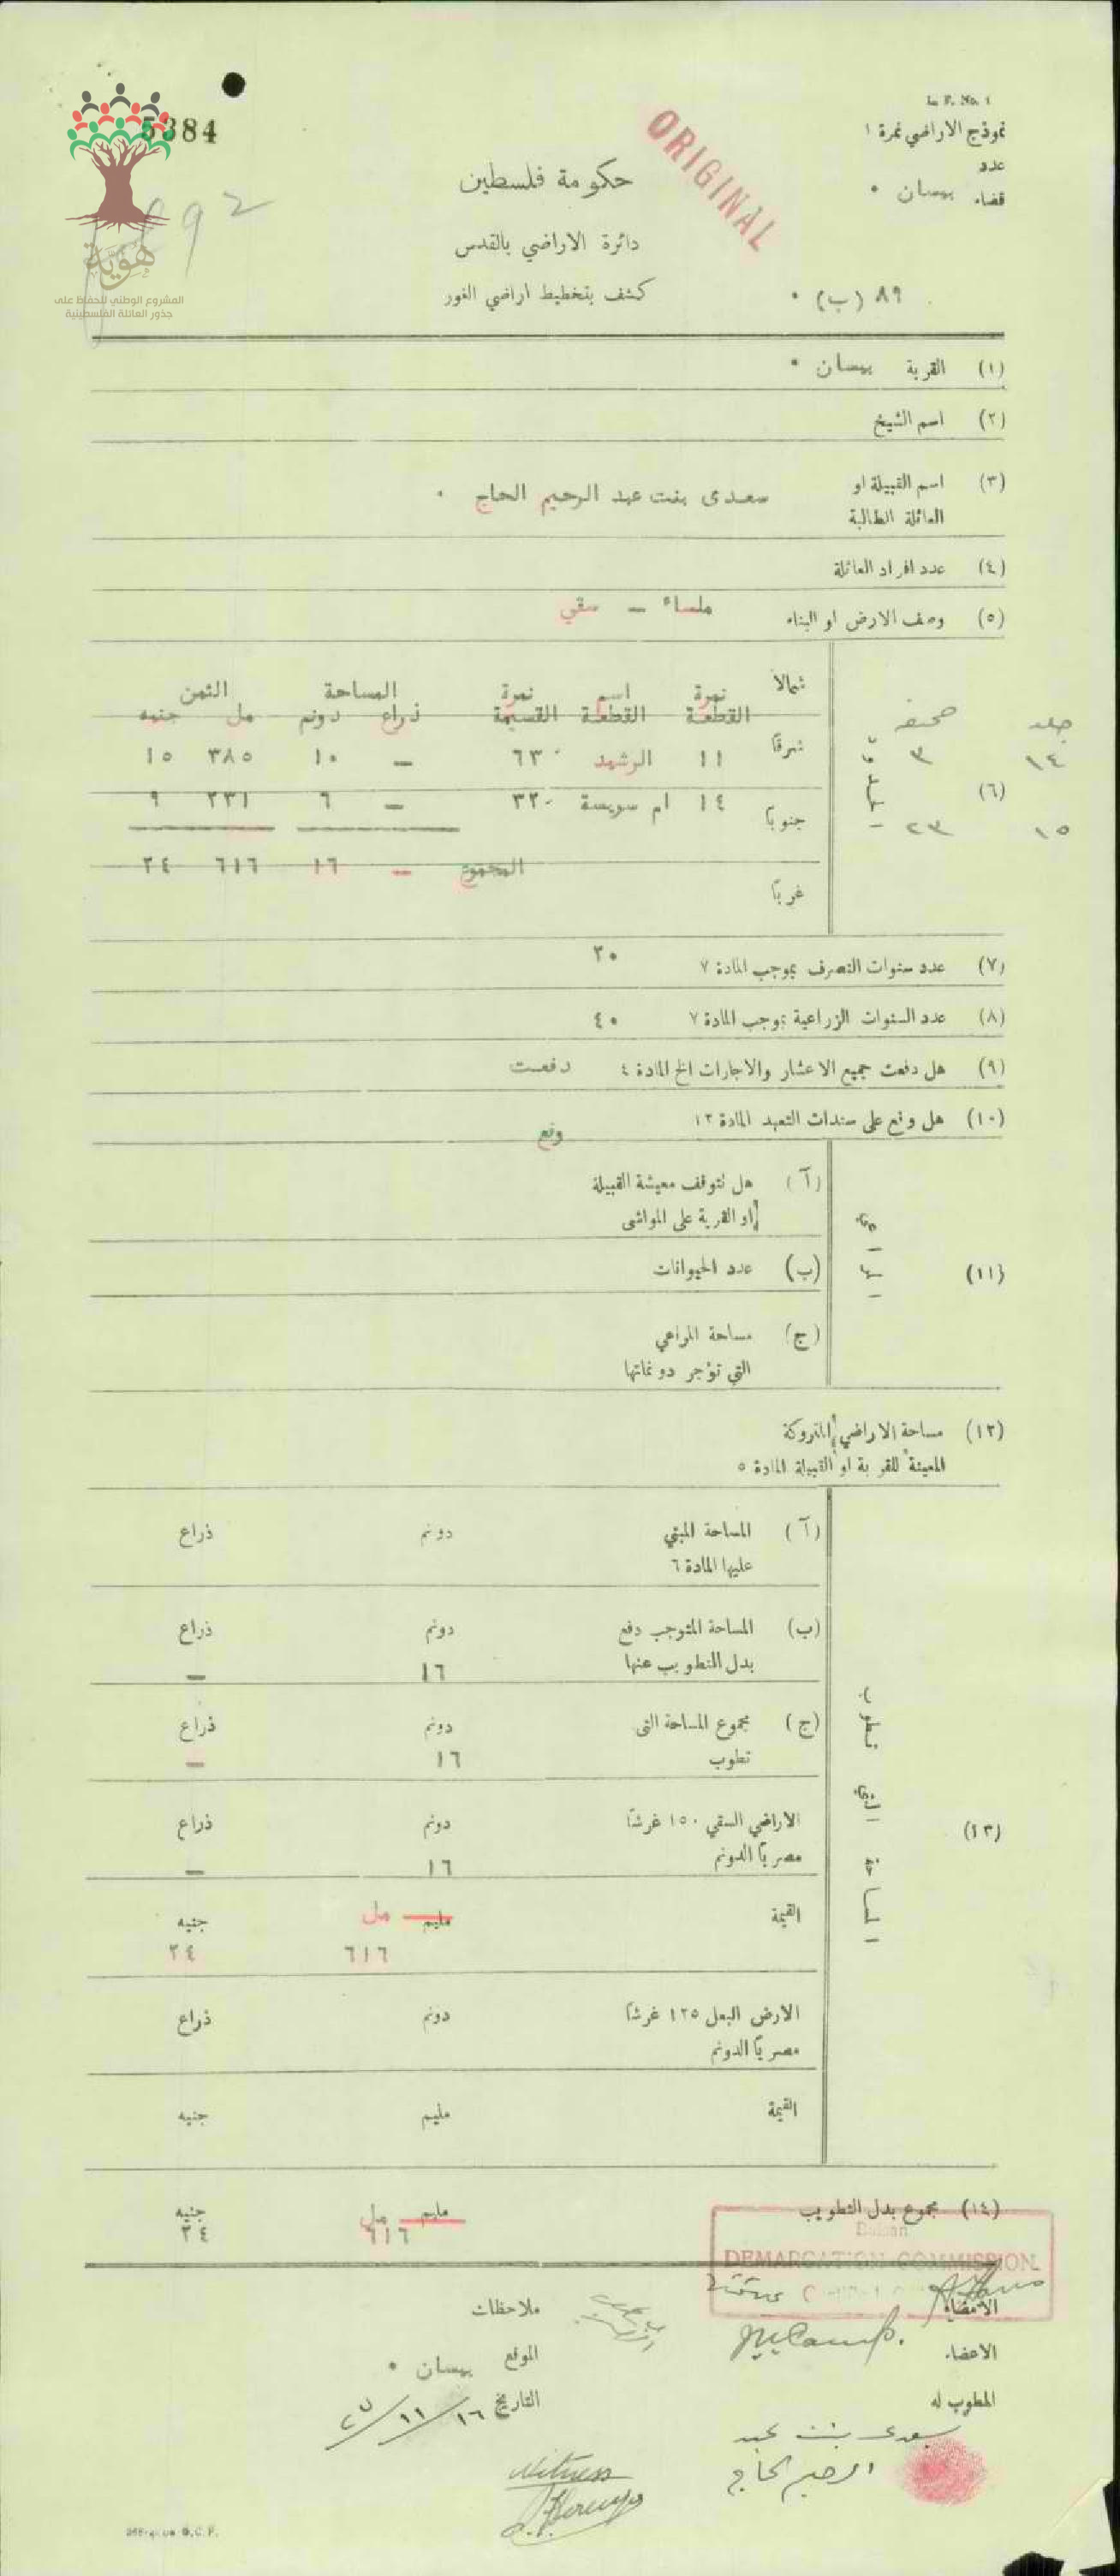 L. F. No. 1
نموذج الاراضي نمرة ١
5384
عدد
ORIGINAL
حكومة فلسطين
قضاء بيسان •
992
دائرة الاراضي بالقدس
هَوِيَّة
كشف بتخطيط اراضي الغور
٨٩ (ب) •
المشروع الوطني للحفاظ على
جذور العائلة الفلسطينية
(١) القرية بيسان •
(٢) اسم الشيخ
(٣) اسم القبيلة او
العائلة الطالبة
سعدى بنت عبد الرحيم الحاج •
(٤) عدد افراد العائلة
(٥) وصف الارض او البناء ملساء – سقي
(٦) الحدود
شمالاً
شرقاً
جنوباً
غرباً
جلد صحيفة
١٤ ٣
١٥ ٢٣
نمرة القطعة اسم القطعة نمرة القسيمة المساحة ذراع دونم الثمن مل جنيه
١١ الرشيد ٦٣ – ١٠ ٣٨٥ ١٥
١٤ ام سويسة ٣٢ – ٦ ٢٣١ ٩
المجموع – ١٦ ٦١٦ ٢٤
(٧) عدد سنوات التصرف بموجب المادة ٧ ٢٠
(٨) عدد السنوات الزراعية بموجب المادة ٧ ٤٠
(٩) هل دفعت جميع الاعشار والاجارات الخ المادة ٤ دفعت
(١٠) هل وقع على سندات التعهد المادة ١٣ وقع
(١١) المراعي
(آ) هل تتوقف معيشة القبيلة
او القرية على المواشي
(ب) عدد الحيوانات
(ج) مساحة المراعي
التي تؤجر دونماتها
(١٢) مساحة الاراضي المتروكة
المعينة للقرية او القبيلة المادة ٥
(١٣) المساحة التي تطوب
(آ) المساحة المبني دونم ذراع
عليها المادة ٦
(ب) المساحة المتوجب دفع دونم ذراع
بدل التطويب عنها ١٦ –
(ج) مجموع المساحة التي دونم ذراع
تطوب ١٦ –
الاراضي السقي ١٥٠ غرشاً دونم ذراع
مصرياً الدونم ١٦ –
القيمة مليم مل جنيه
٦١٦ ٢٤
الارض البعل ١٢٥ غرشاً دونم ذراع
مصرياً الدونم
القيمة مليم جنيه
(١٤) مجموع بدل التطويب مليم مل جنيه
٦١٦ ٢٤
Baisan
DEMARCATION COMMISSION
الامضاء
ملاحظات
الاعضاء
الموقع بيسان •
المطوب له
التاريخ ١٦/١١/٢٧
سعدى بنت عبد
الرحيم الحاج
Witness